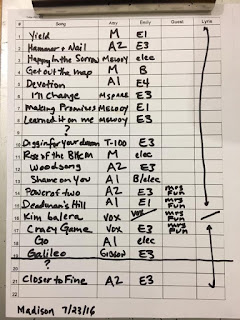 # Song Amy Emily Guest Lyric
1 Yield M E1
2 Hammer + Nail A2 E3
3 Happy In the Sorrow MELODY elec
4 Get out the map M B
5 Devotion A1 E4
6 I'll Change MSPARE E3
7 Making Promises MELODY E1
8 Learned it on me MELODY E3
9 ?
10 Diggin for your dream T-100 E3
11 Rise of the M elec
12 Woodsong A2 E3
13 Shame on You A1 B/elec
14 Power of two A2 E3 Mrs Fun
15 Deadman's Hill A1 E1 Mrs Fun
16 Kim balera VOX Vox Mrs Fun
17 Crazy Game VOX E3 Mrs Fun
18 Go A1 elec
19 Galileo GIBSON E3
20 ?
21 Closer to Fine A2 E3
22
Madison 7/23/16